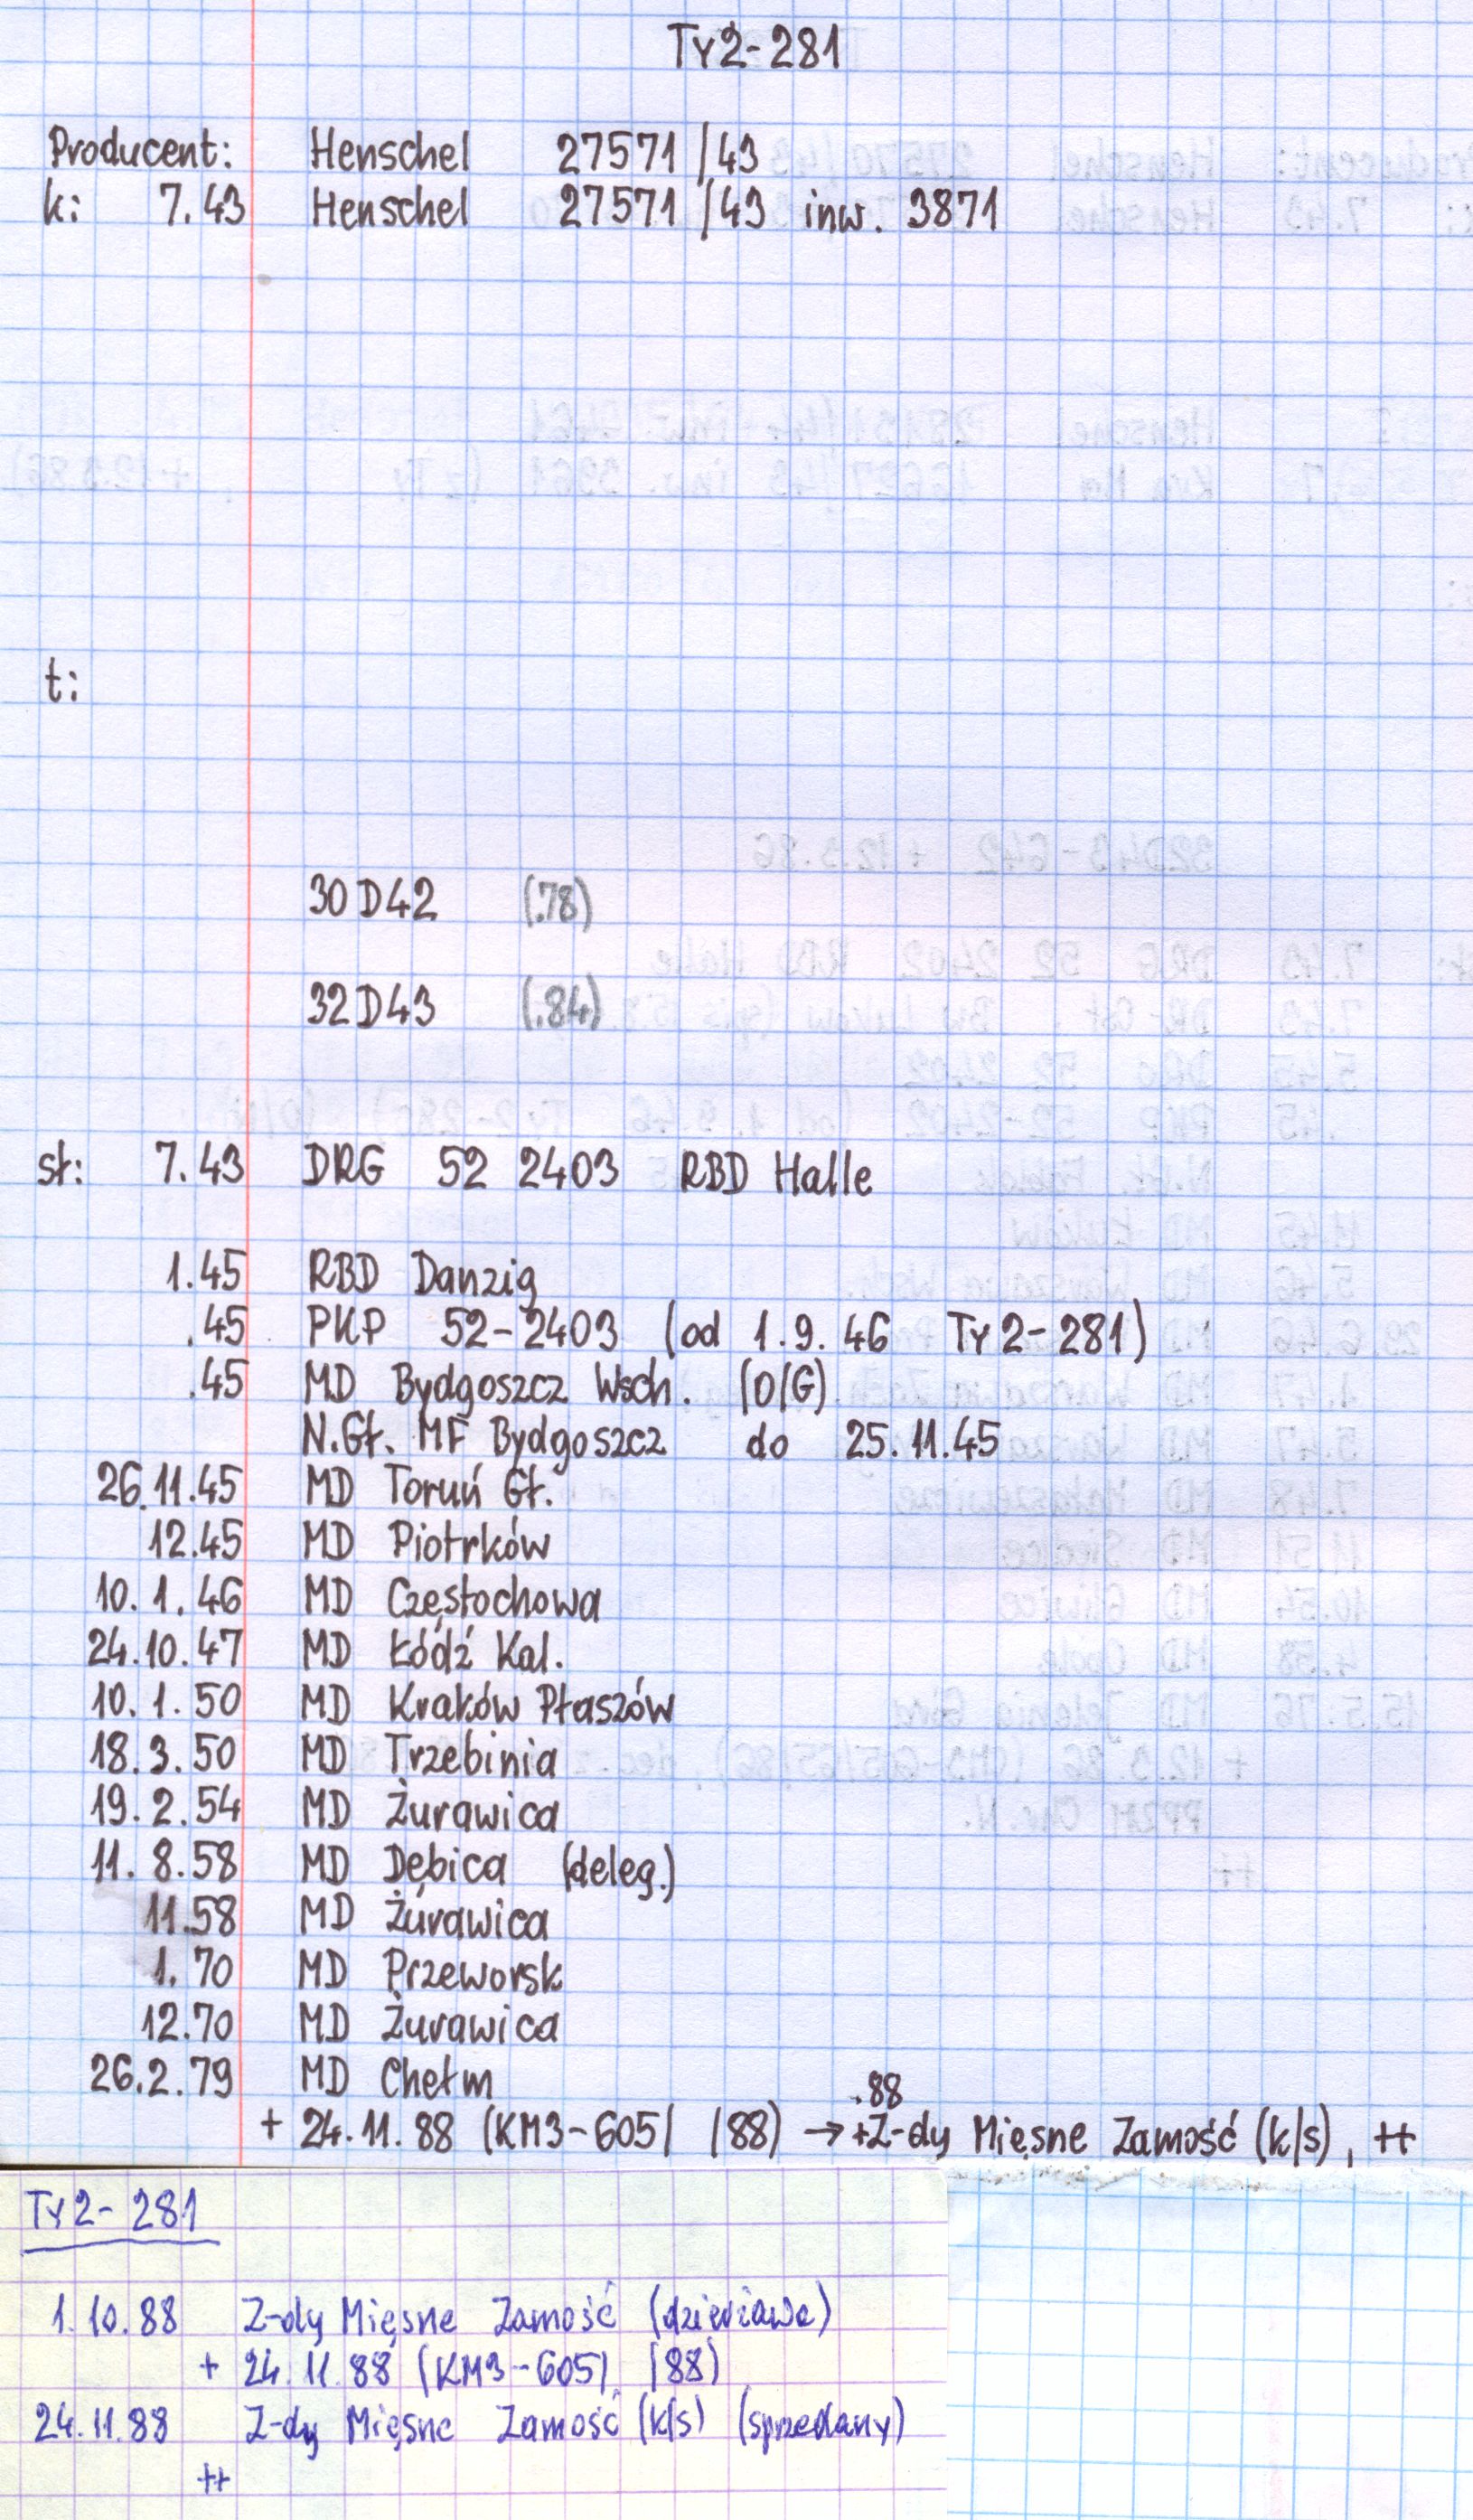 Ty2-281
Producent: Henschel 27571/43
k: 7.43 Henschel 27571/43 inw. 3871
t:
30D42 (.78)
32D43 (.84)
st: 7.43 DRG 52 2403 RBD Halle
1.45 RBD Danzig
.45 PKP 52-2403 (od 1.9.46 Ty2-281)
.45 MD Bydgoszcz Wsch. (O/G)
N.Gł. MF Bydgoszcz do 25.11.45
26.11.45 MD Toruń Gł.
12.45 MD Piotrków
10.1.46 MD Częstochowa
24.10.47 MD Łódź Kal.
10.1.50 MD Kraków Płaszów
18.3.50 MD Trzebinia
19.2.54 MD Żurawica
11.8.58 MD Dębica (deleg.)
11.58 MD Żurawica
1.70 MD Przeworsk
12.70 MD Żurawica
26.2.79 MD Chełm
.88
+ 24.11.88 (KM3-605/ /88) → +Z-dy Mięsne Zamość (k/s), ++
Ty2-281
1.10.88 Z-dy Mięsne Zamość (dzierżawa)
+ 24.11.88 (KM3-605/ /88)
24.11.88 Z-dy Mięsne Zamość (k/s) (sprzedany)
++